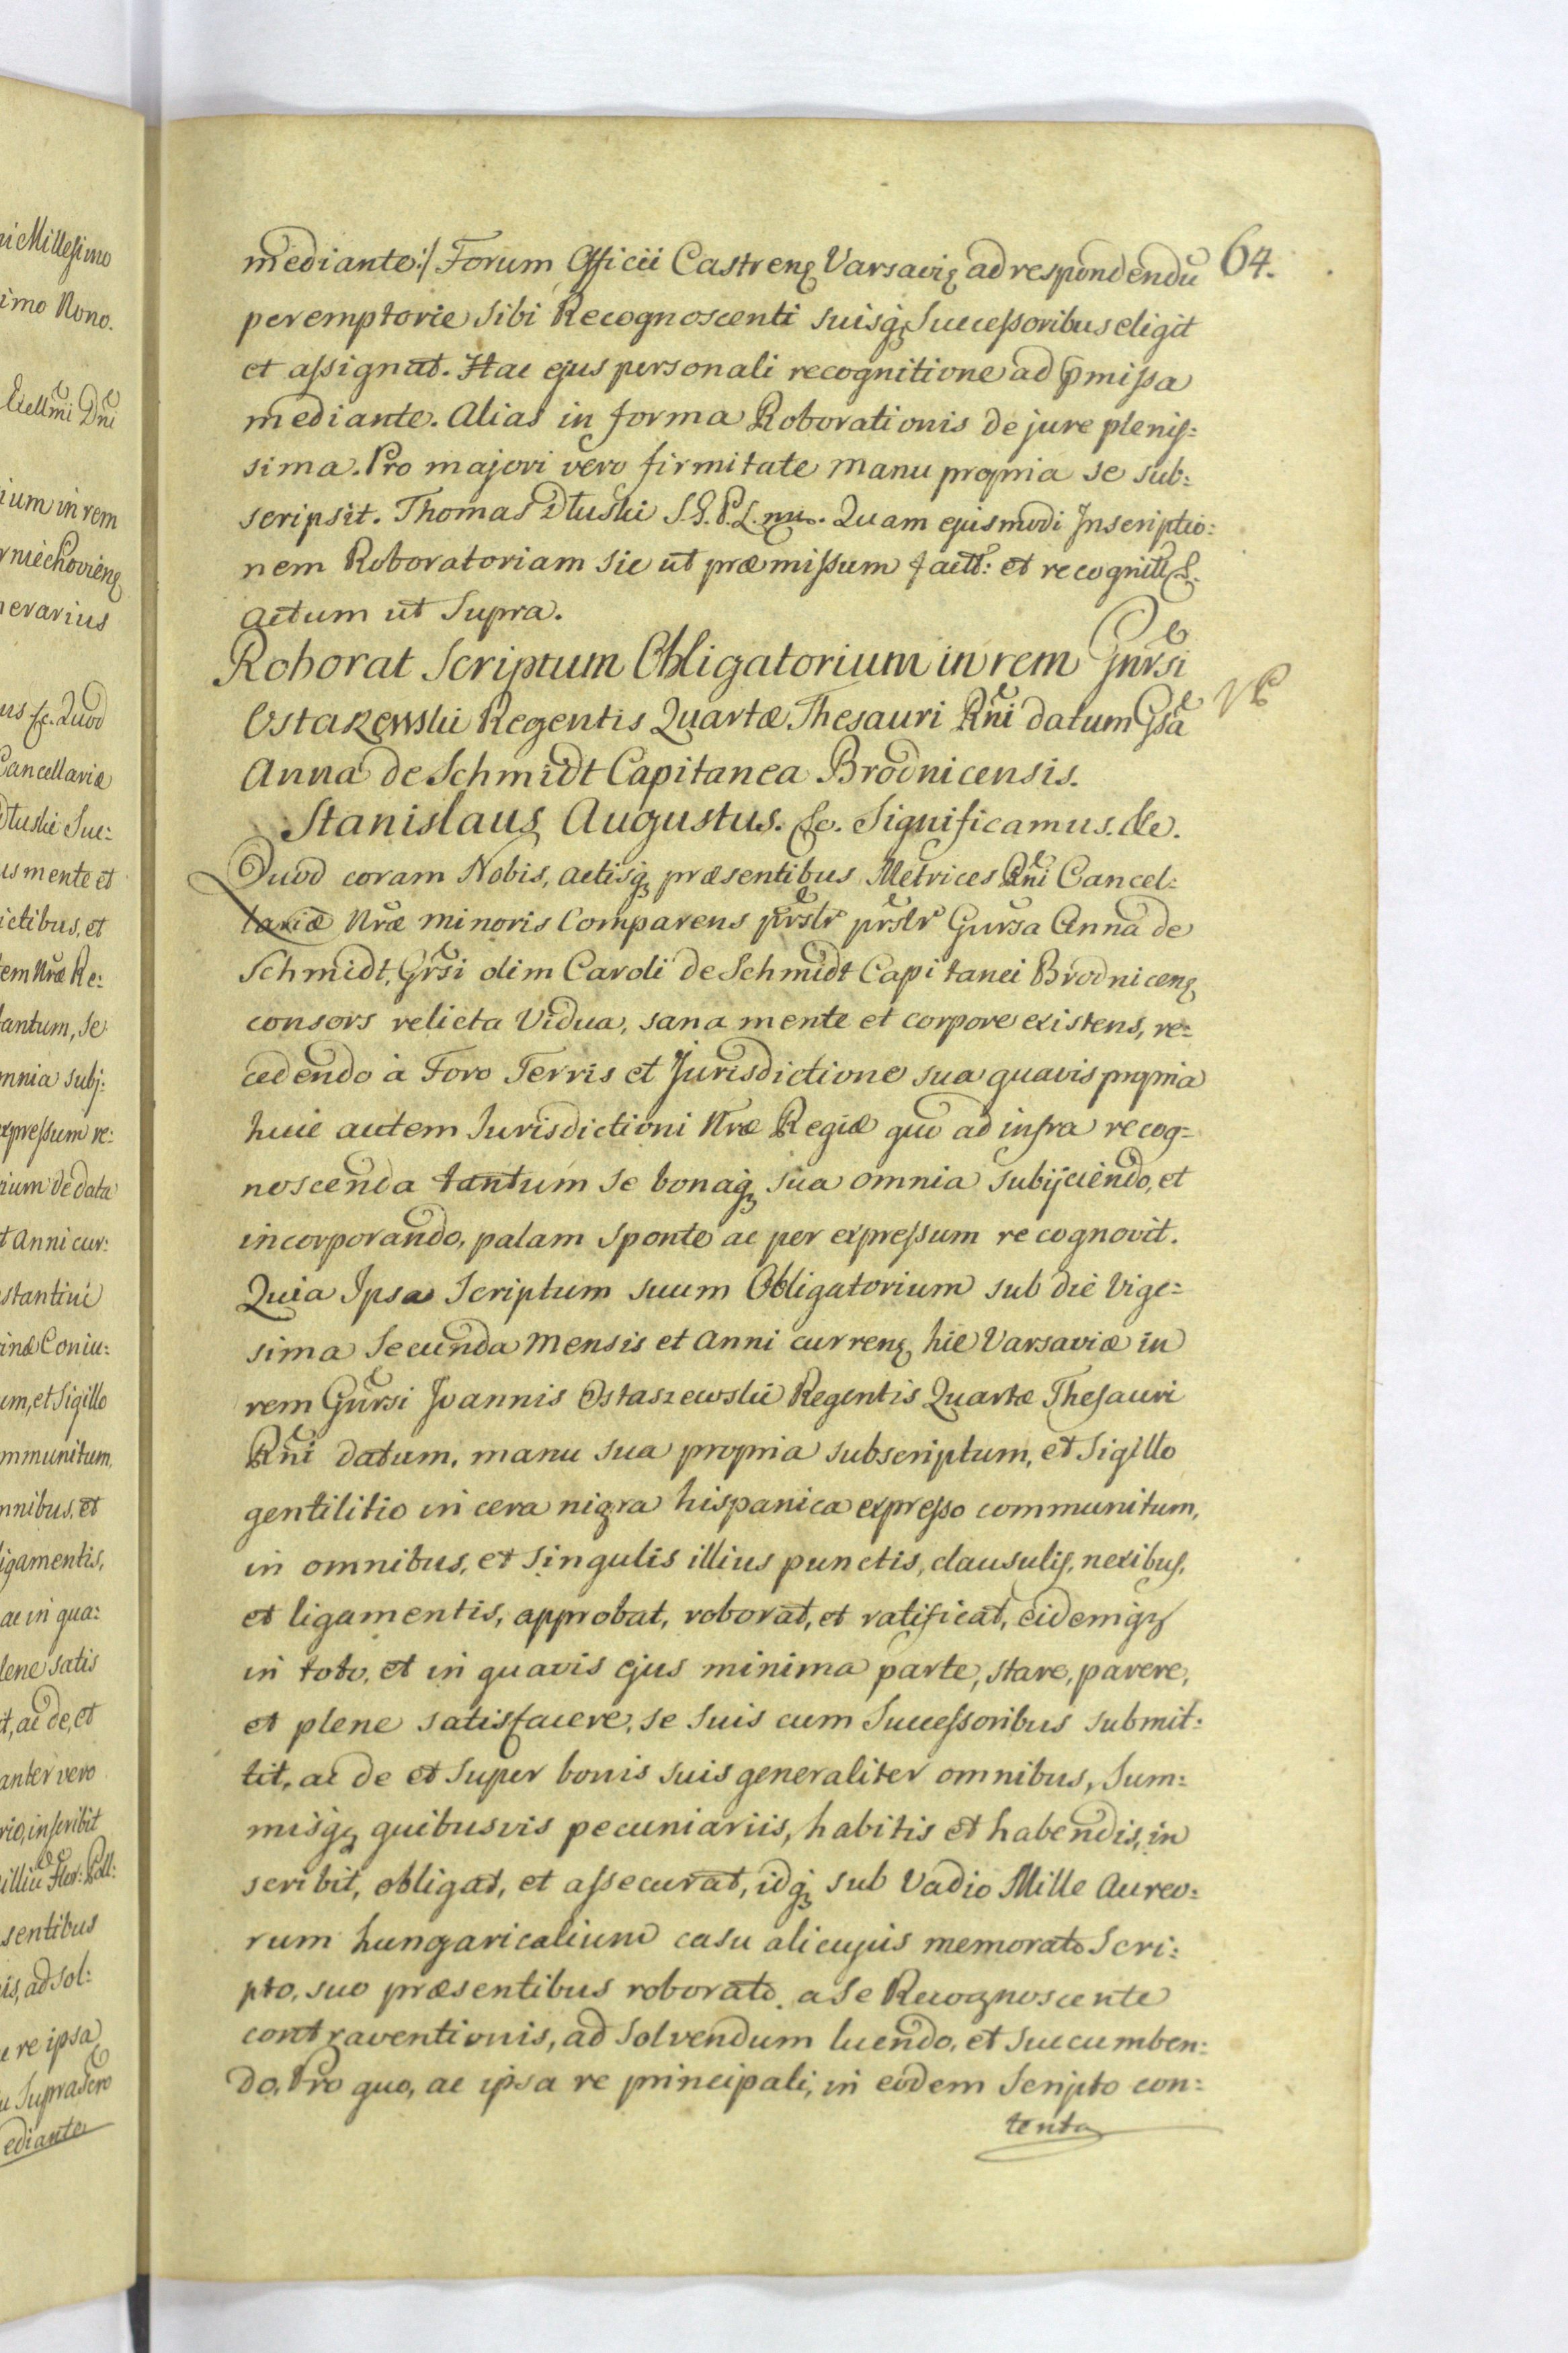 64.
mediante:/ Forum Officii Castrenʒ Varsaviʒ ad respondendũ
peremptorie sibi Recognoscenti suisqʒ Successoribus eligit
et assignat. Hac ejus personali recognitione ad pmissa
mediante. Alias in forma Roborationis de jure plenis:
sima. Pro majori vero firmitate manu propria se sub:
scripsit. Thomas Dłuski S.G.P.L. mp. Quam ejusmodi Inscriptio:
nem Roboratoriam sic ut præmissum factt: et recognitt &.
actum ut Supra.
Roborat Scriptum Obligatorium in rem Gnrsi
Ostaszewski Regentis Quartæ Thesauri Rñi datum Gsa
Anna de Schmidt Capitanea Brodnicensis.
Stanislaus Augustus. &c. Significamus. &c.
Quod coram Nobis, actisqʒ præsentibus Metrices Rñi Cancel:
lariæ Nræ minoris Comparens prslr prslr Gnrsa Anna de
Schmidt, Grsi olim Caroli de Schmidt Capitanei Brodnicenʒ
consors relicta Vidua, sana mente et corpore existens, re:
cedendo à Foro Terris et Jurisdictione sua quavis propria
huic autem Jurisdictioni Nræ Regiæ quo ad infra recog:
noscenda tantum se bonaqʒ sua omnia subijciendo, et
incorporando, palam sponte ac per expressum recognovit.
Quia Ipsa Scriptum suum Obligatorium sub die Vige:
sima Secunda Mensis et Anni currenʒ hic Varsaviæ in
rem Gnrsi Joannis Ostaszewski Regentis Quartæ Thesauri
Rñi datum, manu sua propria subscriptum, et Sigillo
gentilitio in cera nigra hispanica expresso communitum,
in omnibus, et singulis illius punctis, clausulis, nexibus,
et ligamentis, approbat, roborat, et ratificat, eidemqʒ
in toto, et in quavis ejus minima parte, stare, parere,
et plene satisfacere, se suis cum Successoribus submit:
tit, ac de et super bonis suis generaliter omnibus, Sum:
misqʒ quibusvis pecuniariis, habitis et habendis, in
scribit, obligat, et assecurat, idqʒ sub Vadio Mille Aureo:
rum hungaricalium casu alicujus memorato Scri:
pto, suo præsentibus roborato, a se Recognoscente
contraventionis, ad solvendum luendo, et succumben:
do, Pro quo, ac ipsa re principali, in eodem Scripto con:
tenta